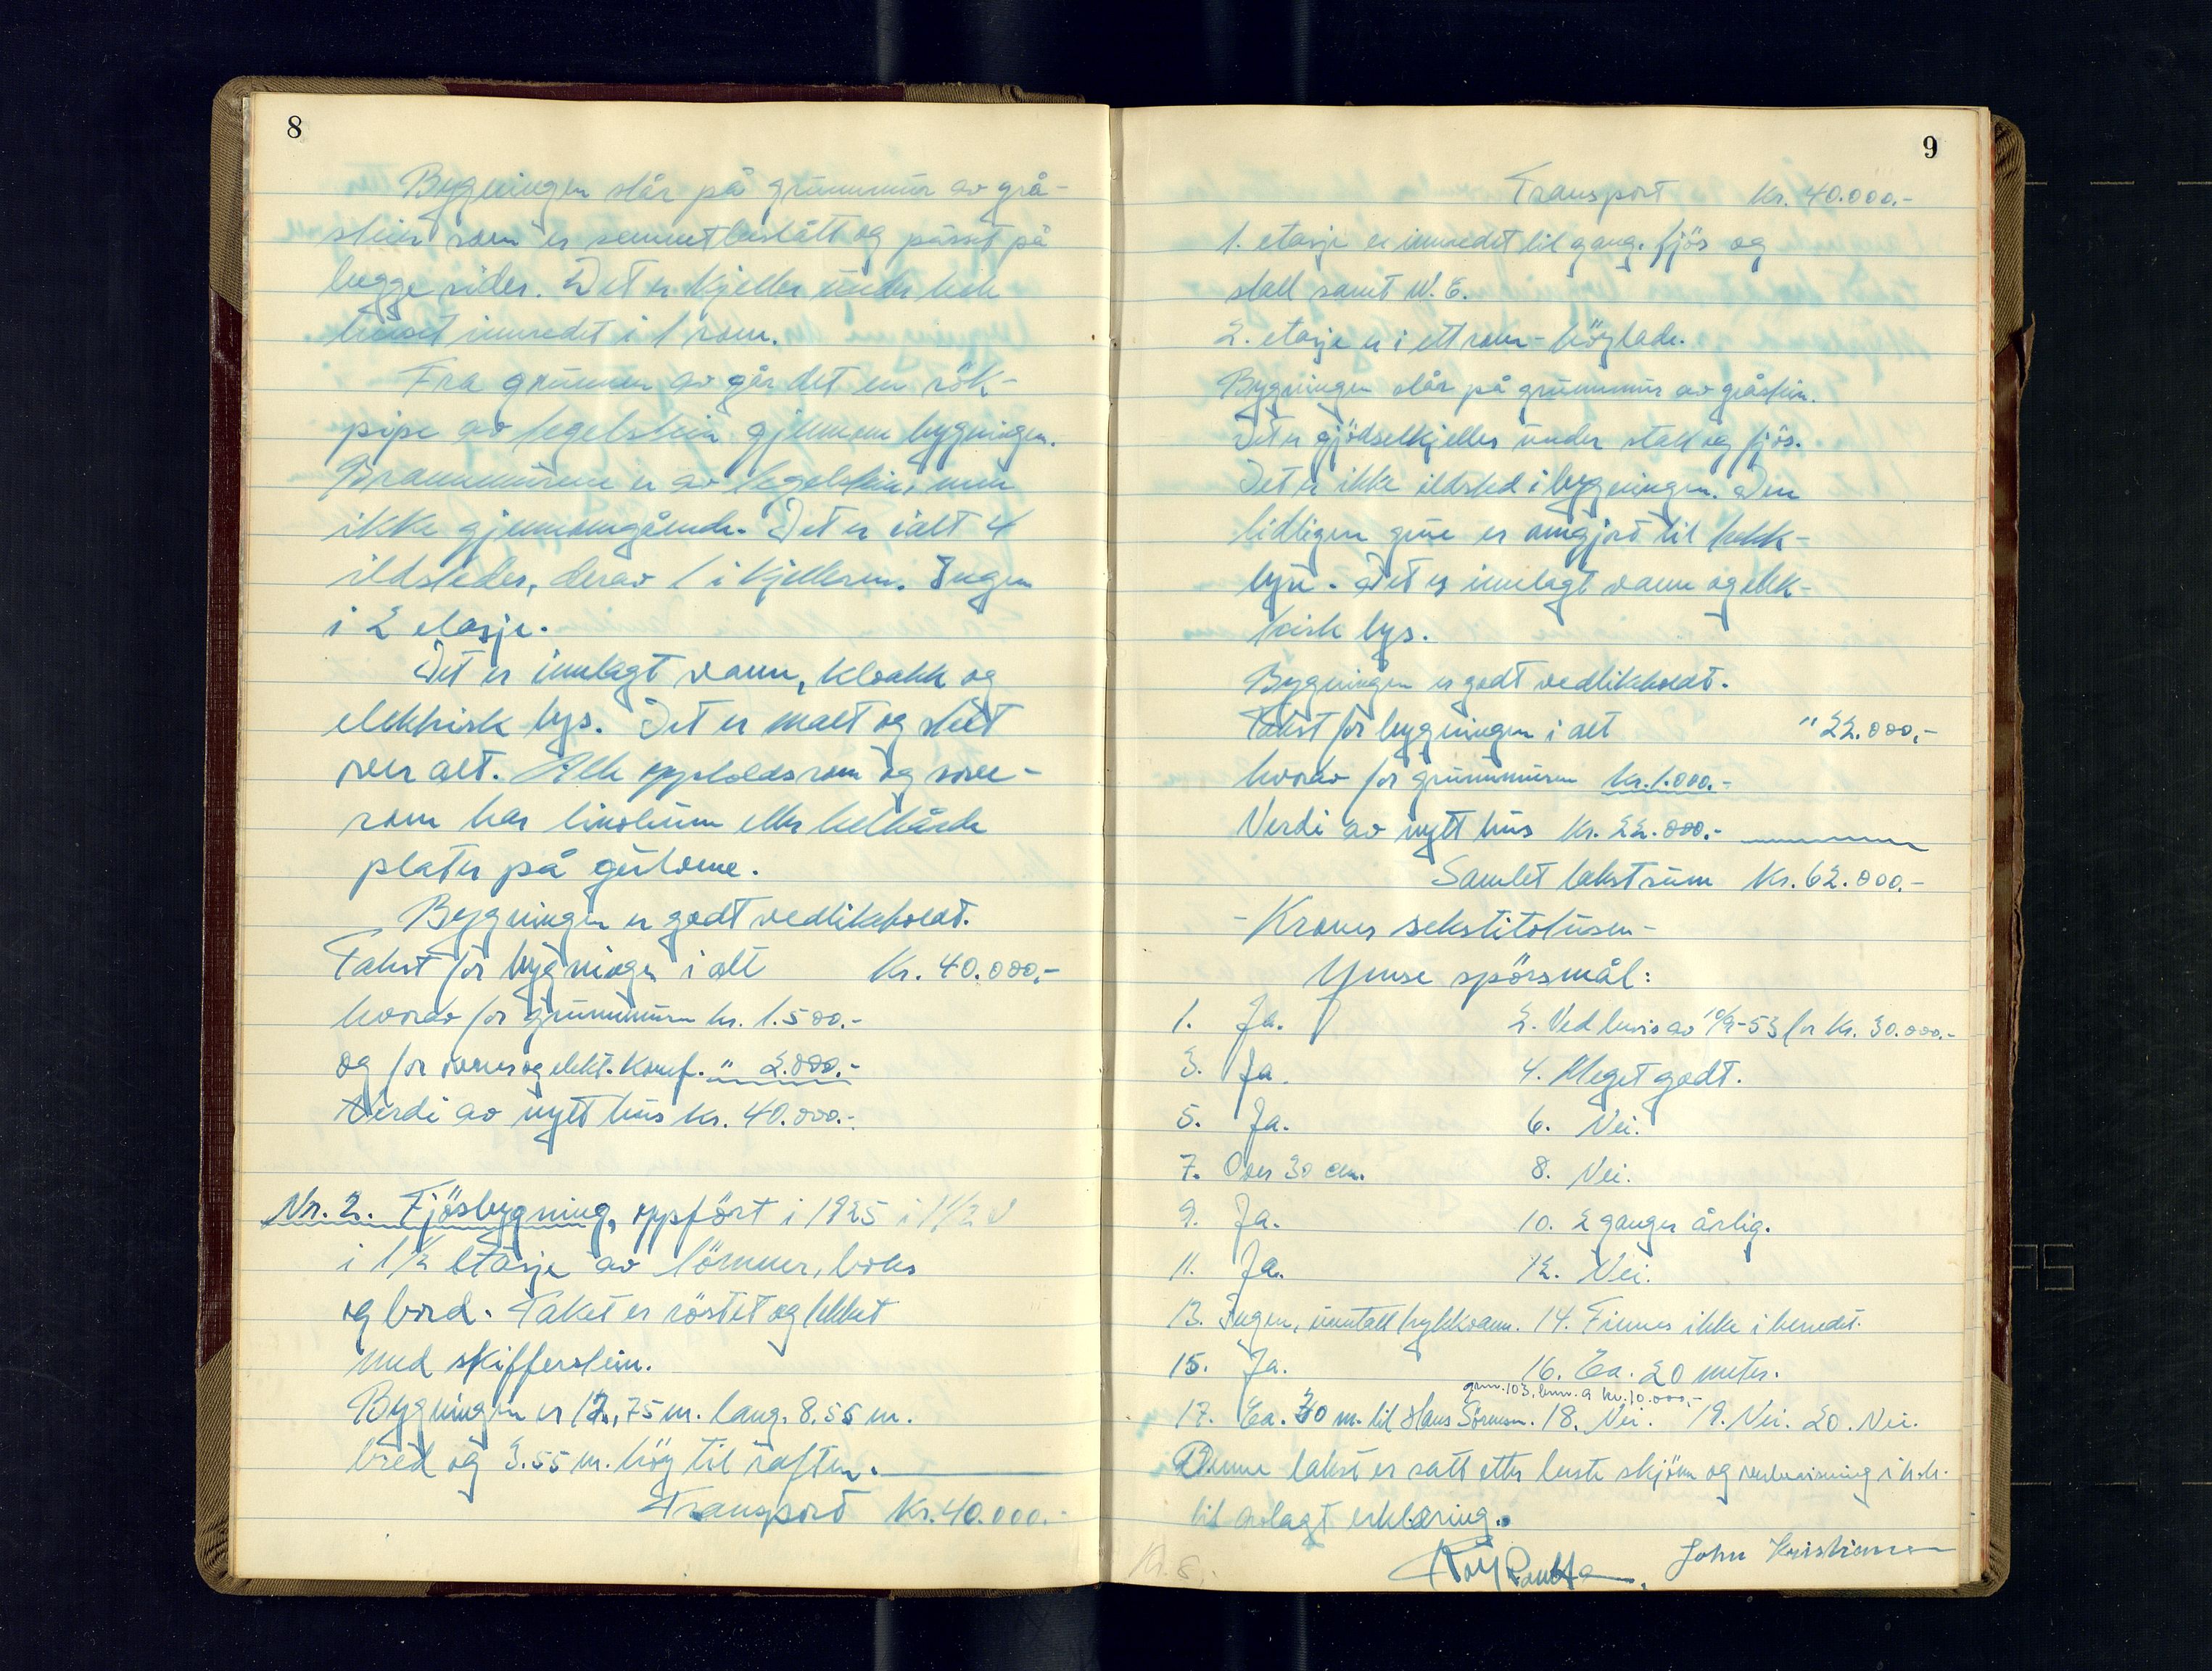 8
Bygningen står på grunnmur av grå-
stein som er sementbeslått og pusset på
begge sider. Det er kjeller under hele
huset innredet i 1 rom.
Fra grunnen av går det en rök-
pipe av teglstein gjennem bygningen.
Brannmurene er av teglstein, men
ikke gjennomgående. Det er ialt 4
ildsteder, derav 1 i kjelleren. Ingen
i 2 etasje.
Det er innlagt vann, kloakk og
elektrisk lys. Det er malt og stelt
over alt. Alle oppholdsrom og sove-
rom har linoleum eller helhårde
plater på gulvene.
Bygningen er godt vedlikeholdt.
Takst for bygningen i alt Kr. 40.000,-
hvorav for grunnmuren kr. 1.500.-
og for vann og elekt. komf. " 2.000.-
Verdi av nytt hus kr. 40.000.-
Nr. 2. Fjösbygning, oppfört i 1925 i 1 1/2
i 1 1/2 etasje av tömmer, boks
og bord. Taket er röstet og tekket
med skifferstein.
Bygningen er 12,75 m. lang. 8.55 m.
bred og 3.55 m. höy til raften.
Transport Kr. 40.000.-
9
Transport Kr. 40.000.-
1. etasje er innredet til gang. fjös og
stall samt W.C.
2. etasje er i ett rom - höylade.
Bygningen står på grunnmur av gråstein.
Det er gjödselkjeller under stall og fjös.
Det er ikke ildsted i bygningen. Den
tidligere grue er omgjord til bekk-
byri. Det er innlagt vann og elek-
trisk lys.
Bygningen er godt vedlikeholdt.
Takst for bygningen i alt " 22.000,-
hvorav for grunnmuren kr. 1.000.-
Verdi av nytt hus kr. 22.000.-
Samlet takstsum Kr. 62.000.-
- Kroner sekstitotusen -
Ymse spörsmål:
1. Ja. 2. Ved brevis av 10/9-53 for kr. 30.000.-
3. Ja. 4. Meget godt.
5. Ja. 6. Nei.
7. Over 30 cm. 8. Nei.
9. Ja. 10. 2 ganger årlig.
11. Ja. 12. Nei.
13. Ingen, unntatt trykkvann. 14. Finnes ikke i herredet.
15. Ja. 16. Ca. 20 meter.
gnr. 103, bnr. 9 kr. 10.000,-
17. Ca. 30 m. til Hans Sörensen. 18. Nei. 19. Nei. 20. Nei.
Denne takst er satt etter beste skjönn og overbevisning i h.h.
til avlagt erklæring.
Kr. 8,-
John Kristiansen